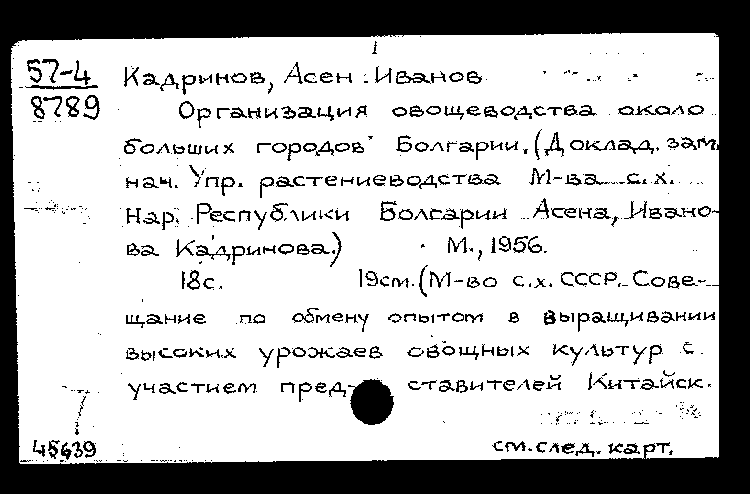 1
57-4
8789
Кадринов, Асен Иванов
Организация овощеводства около
больших городов Болгарии. (Доклад. зам.
нач. Упр. растениеводства М-ва с.х.
Нар. Республики Болгарии Асена, Ивано-
ва Кадринова.) М., 1956.
18с. 19см. (М-во с.х. СССР. Сове-
щание по обмену опытом в выращивании
высоких урожаев овощных культур с
участием пред- ставителей Китайск.
45639
см. след. карт.